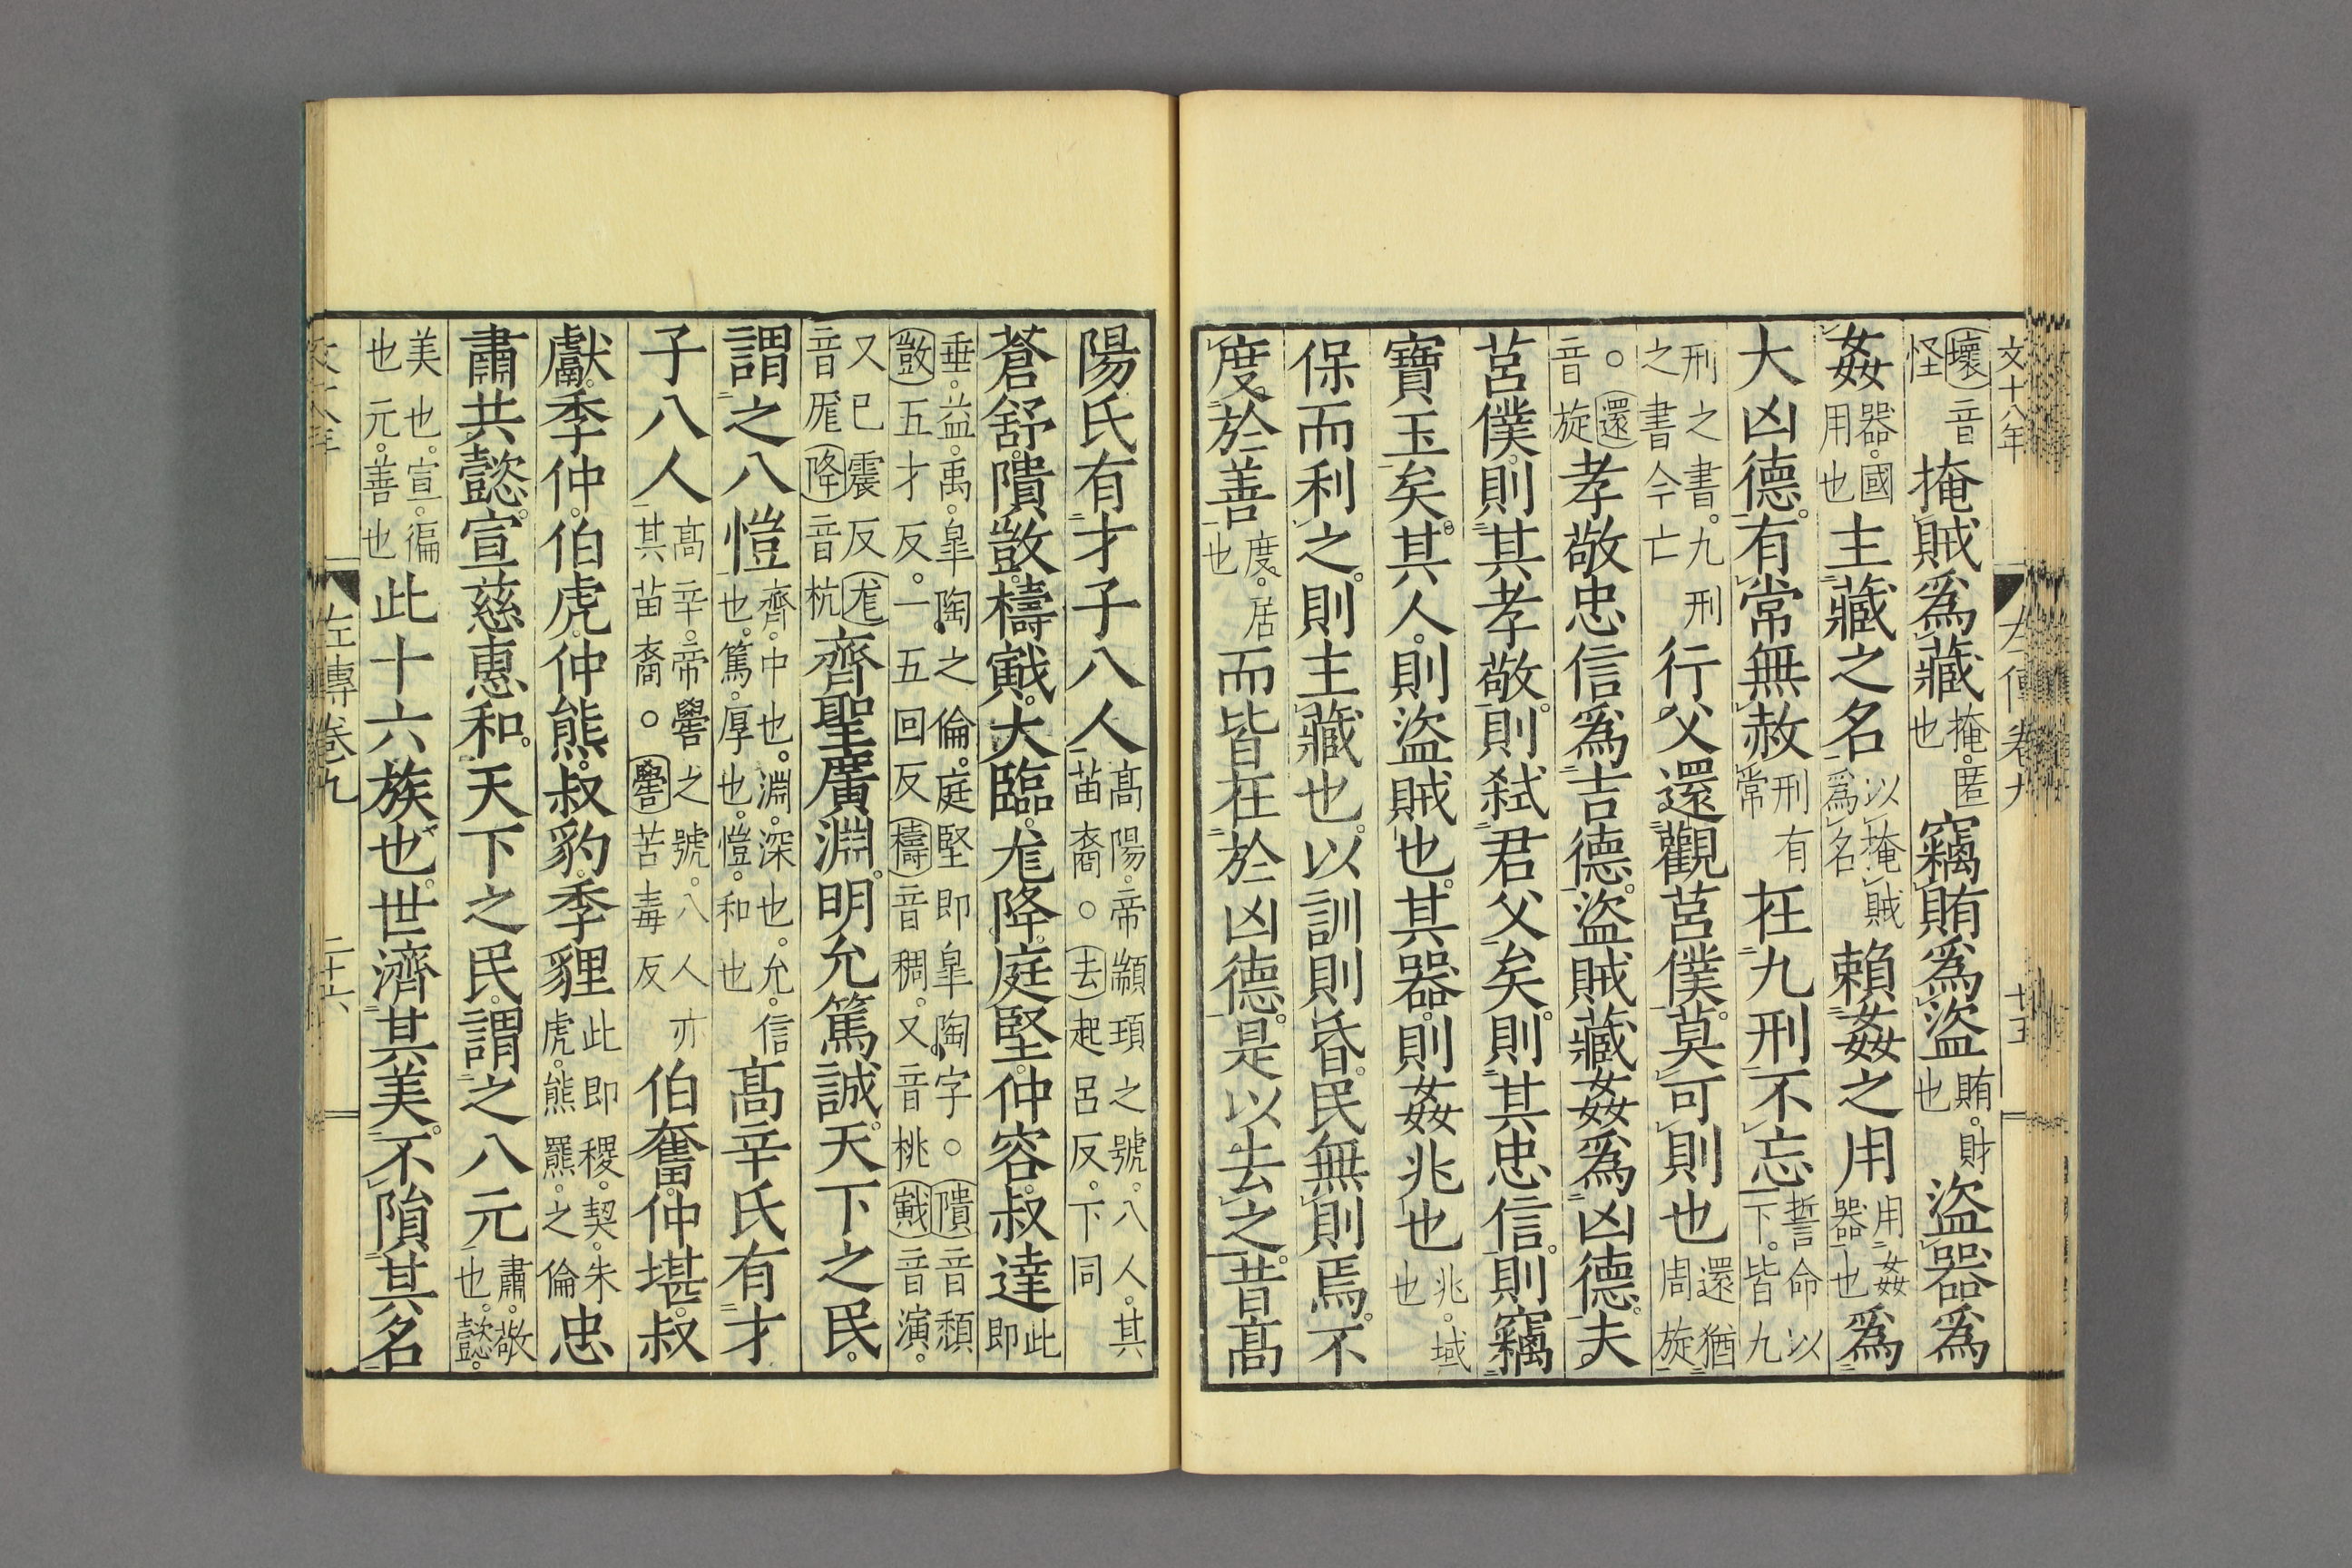 文十八年 左傳卷九 廿五
壞音怪掩賊爲藏掩。匿也竊賄爲盜賄。財也盜器爲
姦器。國用也主藏之名以掩賊爲名賴姦之用用姦器也爲
大凶德。有常無赦刑有常在九刑不忘誓命以下。皆九
刑之書。九刑之書今亡行父還觀莒僕。莫可則也還猶周旋
○還音旋孝敬忠信爲吉德。盜賊藏姦爲凶德。夫
莒僕。則其孝敬。則弑君父矣。則其忠信。則竊
寶玉矣。其人。則盜賊也。其器。則姦兆也兆。域也
保而利之。則主藏也。以訓則昏。民無則焉。不
度於善度。居也而皆在於凶德。是以去之。昔髙
陽氏有才子八人髙陽。帝顓頊之號。八人。其苗裔。○去起呂反。下同
蒼舒。隤敳。檮戭。大臨。尨降。庭堅。仲容。叔達此即
垂。益。禹。皐陶之倫。庭堅即皐陶字。○隤音頹敳五才反。一五回反檮音稠。又音桃戭音演。
又已震反尨音厖降音杭齊聖廣淵。明允篤誠。天下之民。
謂之八愷齊。中也。淵。深也。允。信也。篤。厚也。愷。和也髙辛氏有才
子八人髙辛。帝嚳之號。八人亦其苗裔。○嚳苦毒反伯奮。仲堪。叔
獻。季仲。伯虎。仲熊。叔豹。季貍此即稷。契。朱虎。熊羆。之倫忠
肅共懿。宣慈惠和。天下之民。謂之八元肅。敬也。懿。
美也。宣。徧也元。善也此十六族也。世濟其美。不隕其名
左傳卷九 二十六